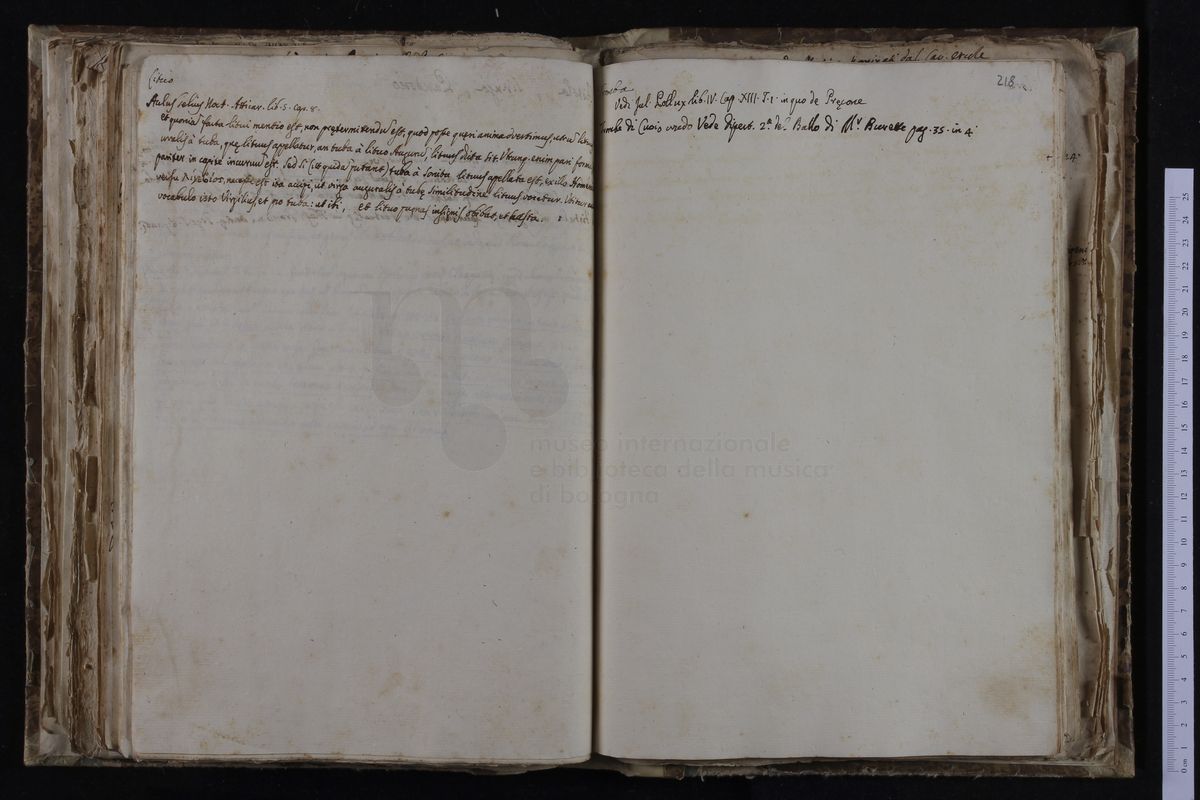 Lituo
Aulus Gelius Noct. Atticar. lib. 5. cap. 8.
et quonia facta litui mentio est, non prętermittendu est, quod posse quęri animadvertimus, utru lituus
auralis à tuba, quę lituus appellatur, an tuba à lituo Augurū, lituus dicta sit. Utrumq. enim pari forma
pariter in capite incurvum est. Sed si (ut quida putant) tuba à sonitu lituus apellata est, ex illo Homeri
versu λίγξε βιός, necesse est ita accipi, ut virga auguralis à tubę similitudine lituus vocetur. Utitur
vocabulo isto Virgilius, et pro tuba: ut ibi, et lituo pugnas insignis obibat, et hasta.
218
Tromba
Vedi Jul. Pollux lib. IV. Cap. XIII. T. I. in quo de Preçone
Trombe di Cuoio crudo Vede dissert. 2ª del Ballo di Mr Burette pag. 35. in 4º
museo internazionale
e biblioteca della musica
di bologna